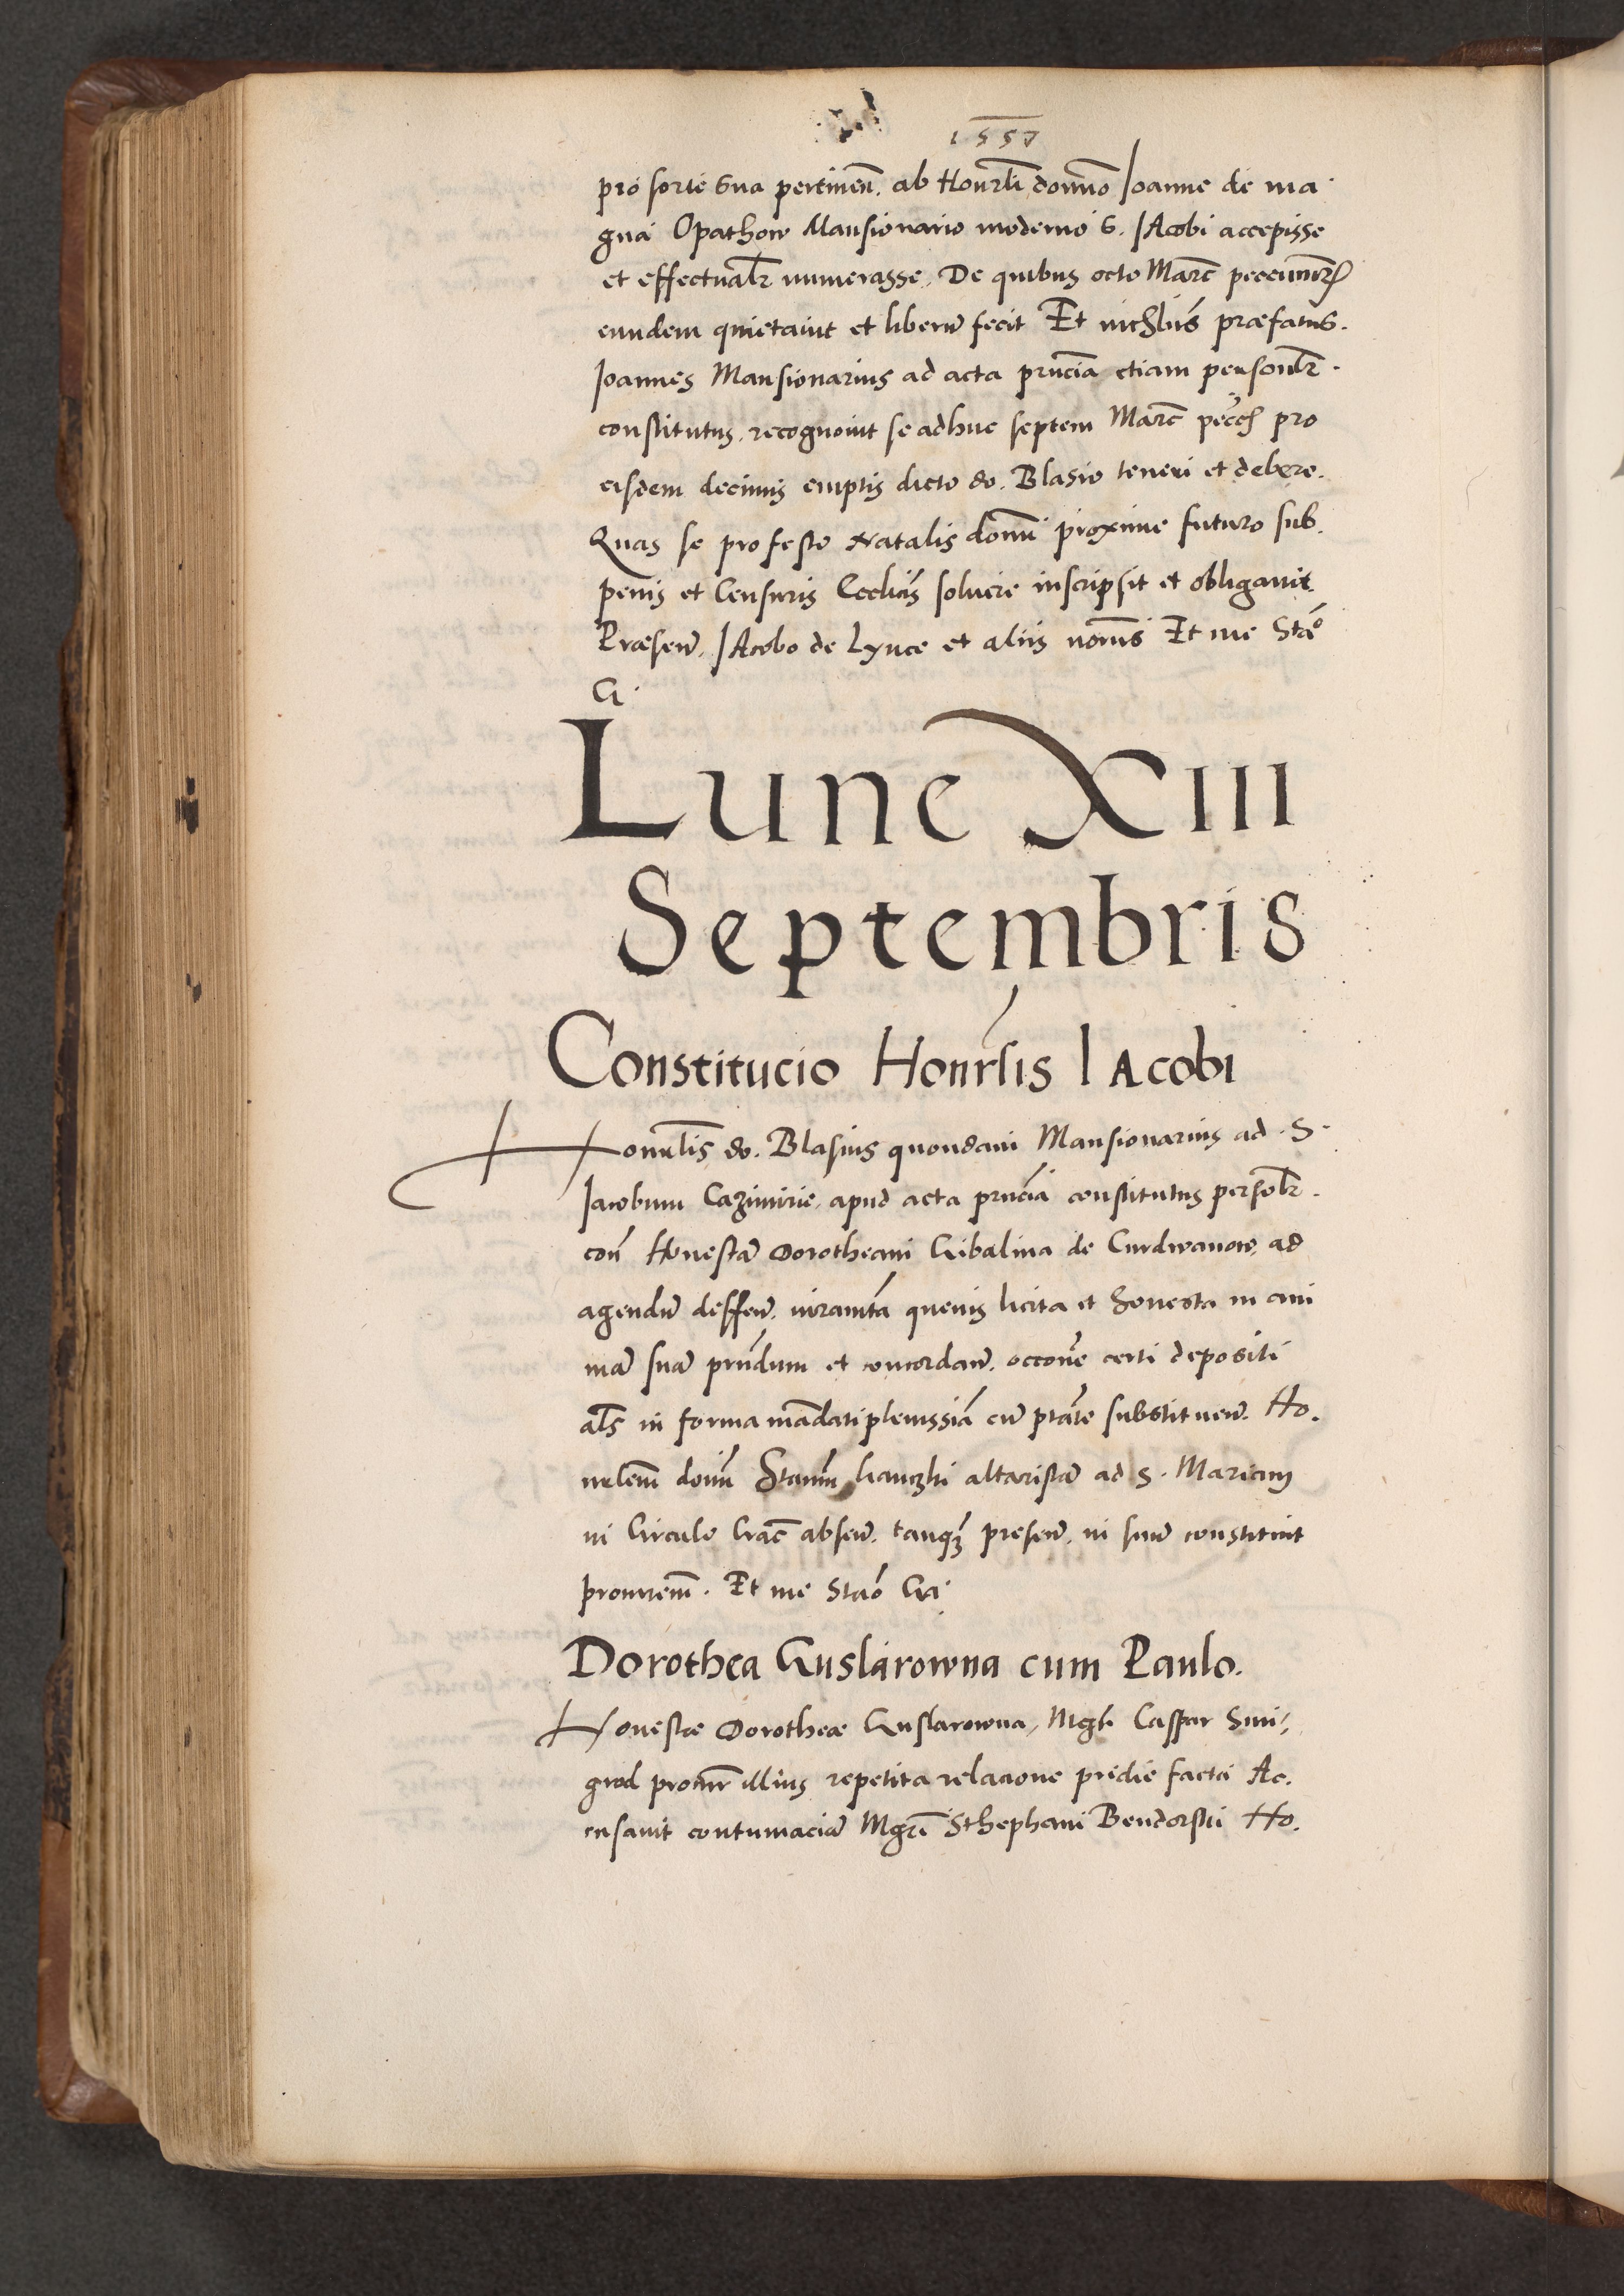 1557
pro sorte sua pertinen. ab Honrli domno Joanne de ma
gna Opathow Mansionario moderno S. JAcobi accepisse
et effectualr numerasse. De quibus octo Marc peccuniar
eundem quietavit et liberu fecit Et nichlius præfatus.
Joannes Mansionarius ad acta prncia etiam personlr.
constitutus. recognovit se adhuc septem Marc pecc pro
eisdem decimis emptis dicto do. Blasio teneri et debere.
Quas se pro festo Natalis domi proxime futuro sub.
penis et Censuris Ecclicis solvere inscripsit et obligavit
Præsen. JAcobo de Lynce et aliis nomis Et me Stao
G.
Lune XIII
Septembris
Constitucio Honrlis JAcobi
Honorlis do. Blasius quondam Mansionarius ad S.
Jacobum Cazimirie. apud acta prncia constitutus persolr.
con Honesta Dorotheam Gibalina de Curdwanow ad
agendu deffen. iuramta quevis licita et honesta in ani
ma sua prndum et concordan. occone certi depositi
als in forma mandati plenissia cu ptate substituen. Ho.
nrlem domi Stanm Ganczki altarista ad S. Mariam
in Circulo Crac absen. tanq presen. in suu constituit
procurem. Et me Stao Ga
Dorothea Guslarowna cum Paulo.
Honestæ Dorotheæ Guslarowna, Mgr Caspar Smi,
grod procur illius repetita relacione pridie facta Ac.
cusavit contumacia Mgri Sthephani Bendorski Ho.